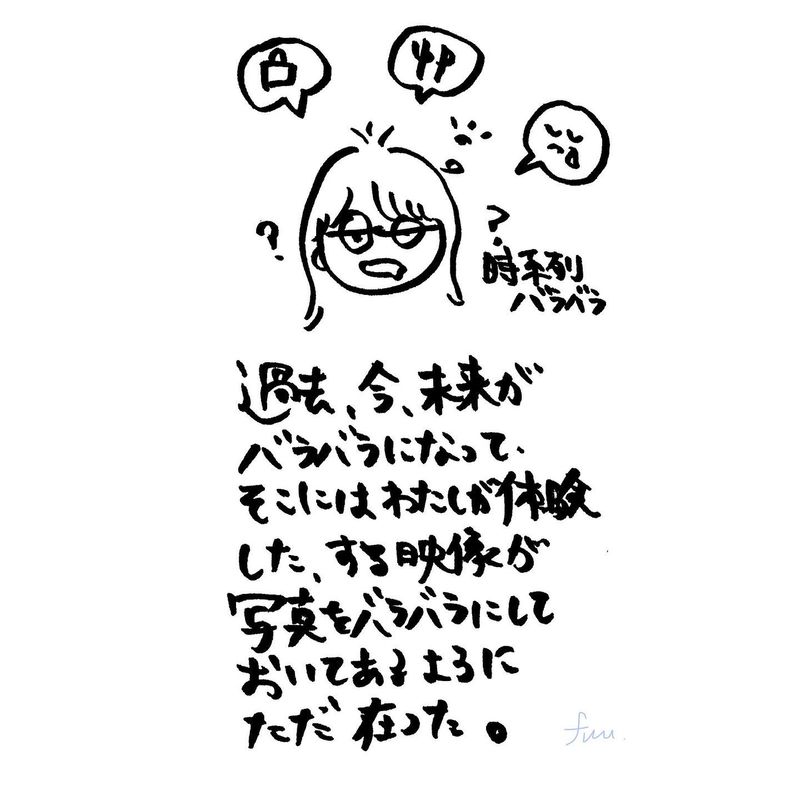 ?
?
時系列
バラバラ
過去、今、未来が
バラバラになって、
そこにはわたしが体験
した、する映像が
写真をバラバラにして
おいてあるように
ただ在った。
fuu.